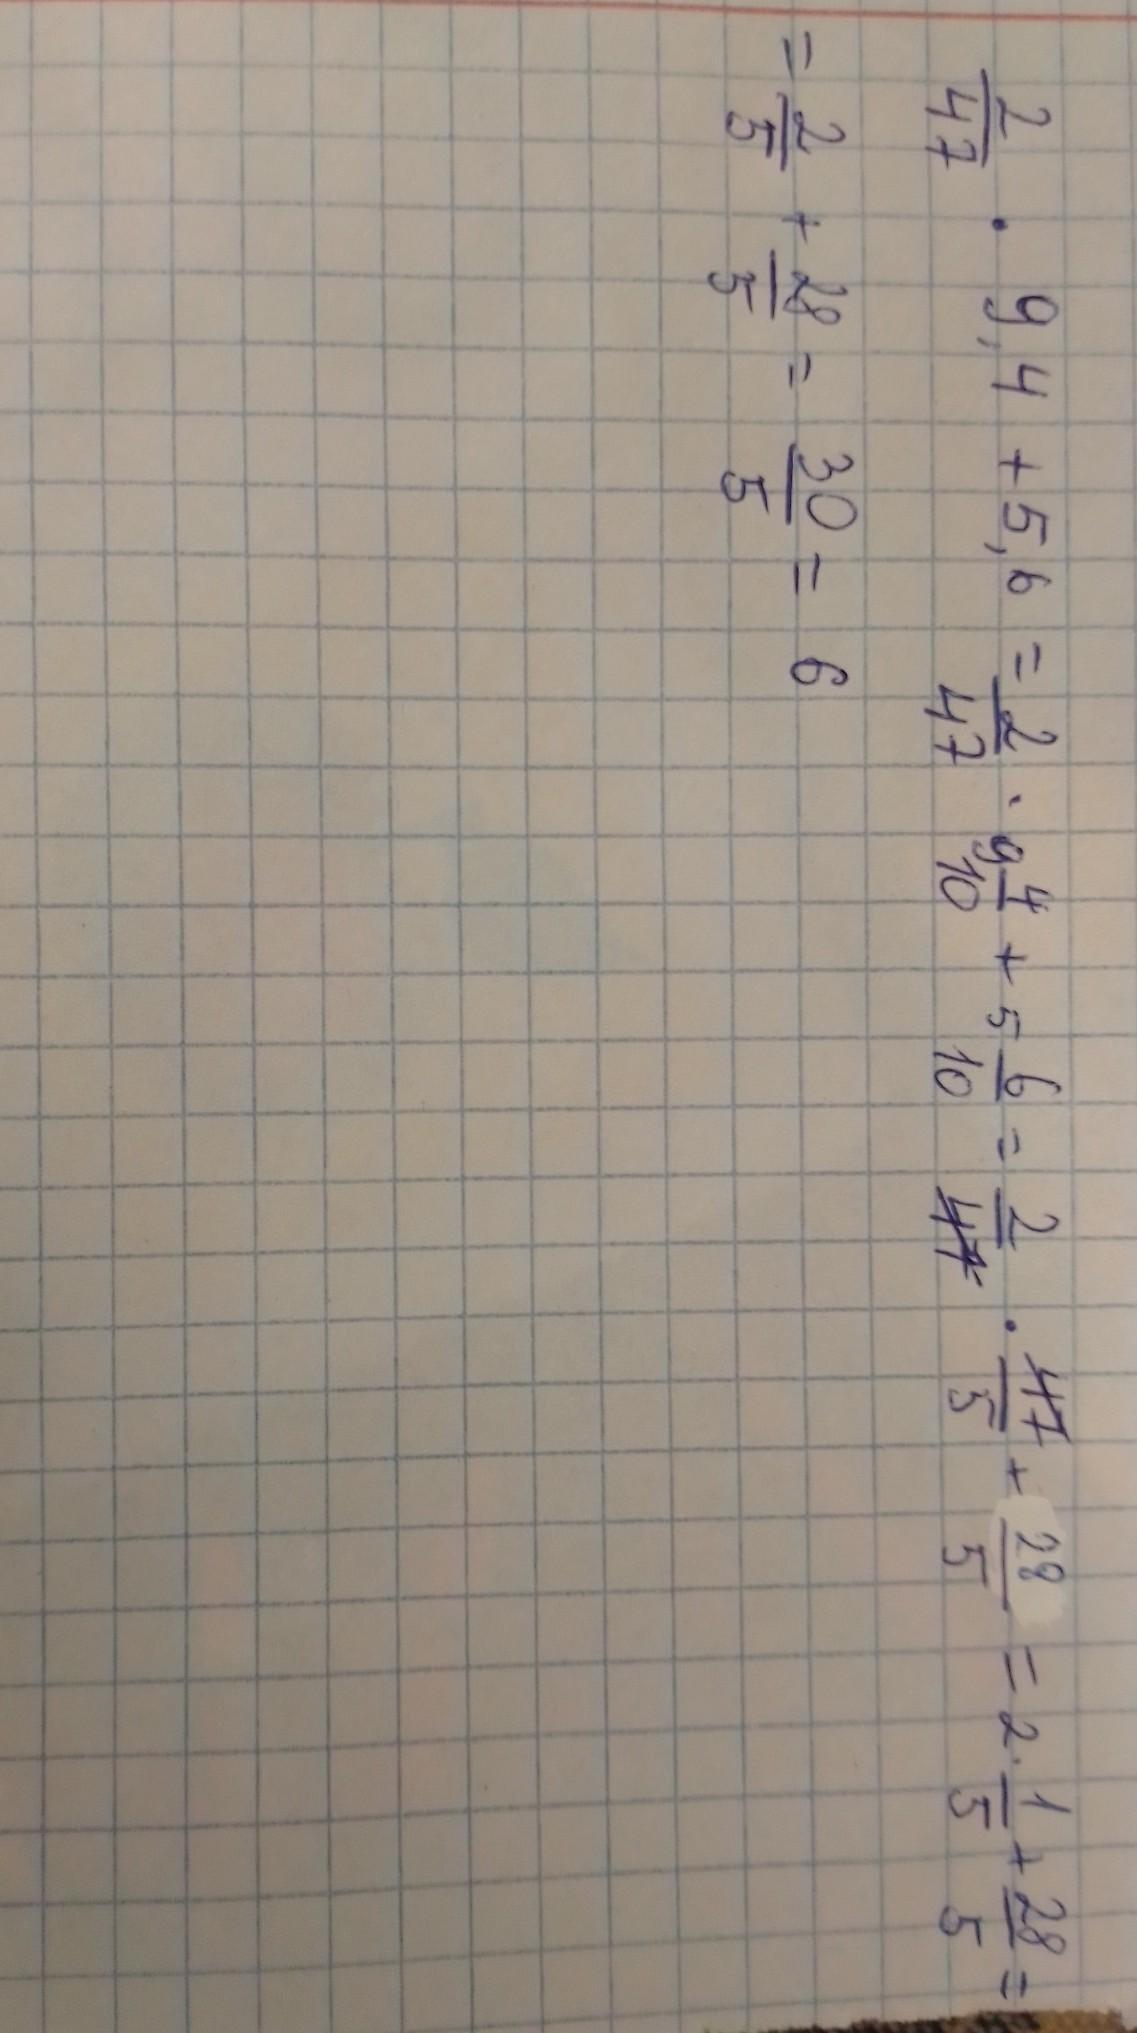 2/47 · 9,4 + 5,6 = 2/47 · 9 4/10 + 5 6/10 = 2/47 · 47/5 + 28/5 = 2 · 1/5 + 28/5 =
= 2/5 + 28/5 = 30/5 = 6